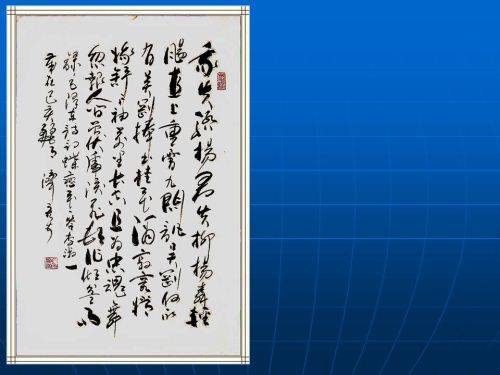 我失骄楊君失柳楊柳轻
颺直上重霄九問訊吴剛何所
有吴剛捧出桂花酒寂寞嫦
娥舒广袖万里长空且为忠魂舞
忽報人间曾伏虎淚飛頓作倾盆雨
錄毛澤東詩詞蝶戀花答李淑一
己亥